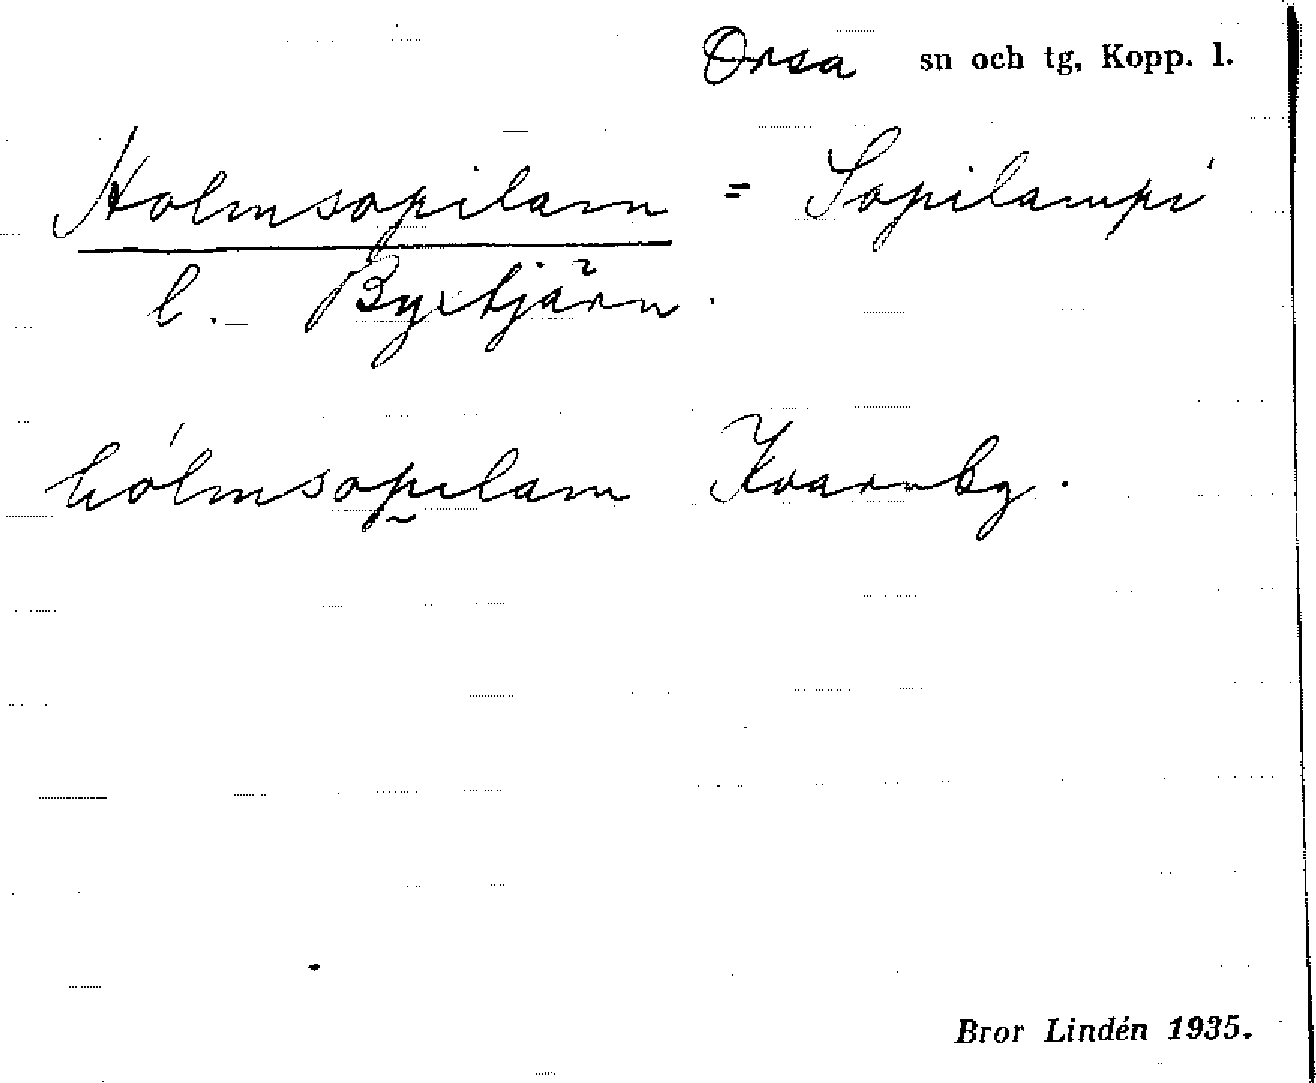 Orsa sn och tg, Kopp. l.
Holmsopilam = Sopilampi
l. Byxtjärn.
hólmsopilam Kvarnby.
Bror Lindén 1935.